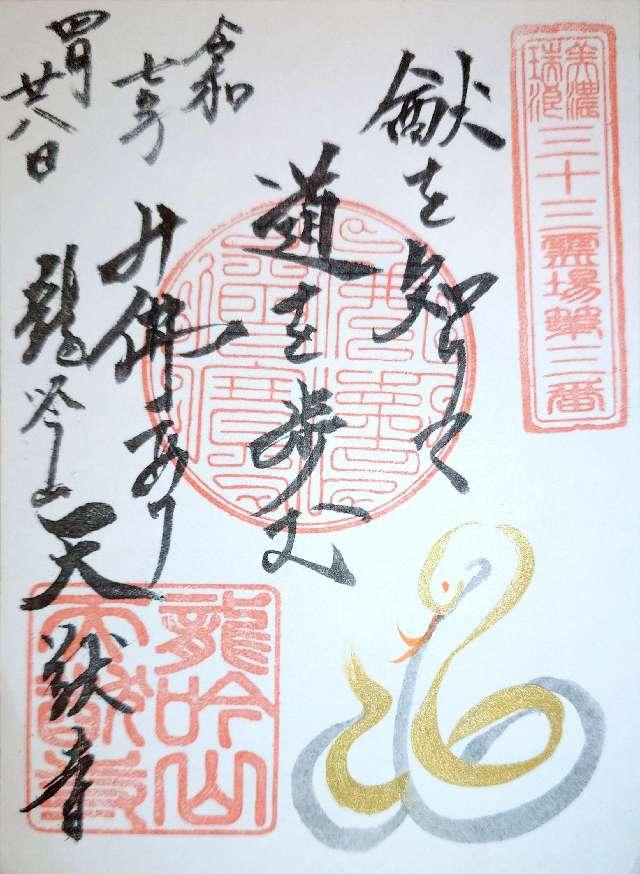 美濃
瑞浪
三十三霊場第三番
猷を智りて
道を歩む
佛あり
令和
七年
四月
廿八日
龍吟山 天猷寺
龍吟山
天猷寺